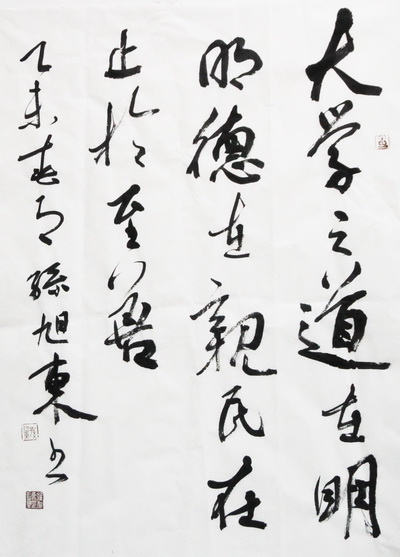 大学之道在明
明德在親民在
止於至善
乙未春月孫旭東書